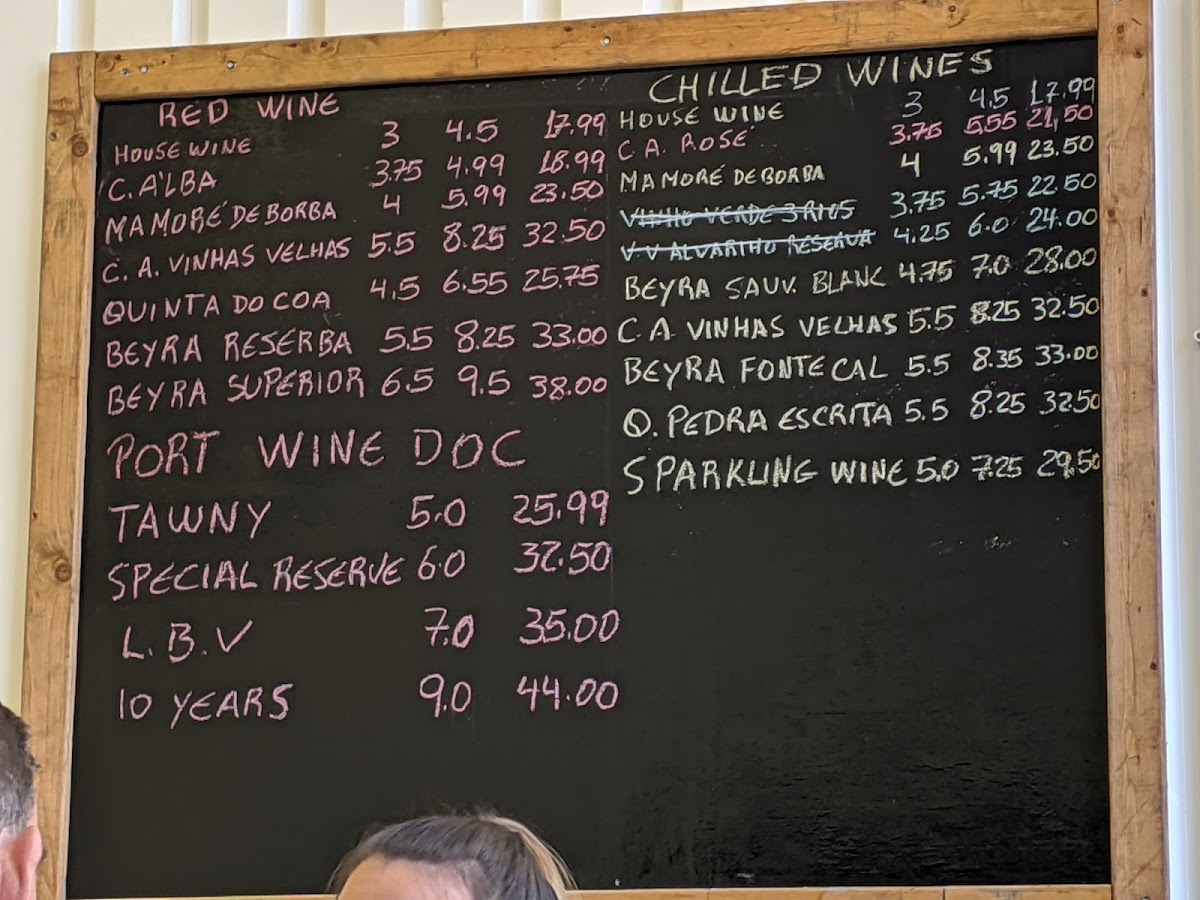 RED WINE
HOUSE WINE 3 4.5 17.99
C. ALBA 3.75 4.99 18.99
MAMORÉ DE BORBA 4 5.99 23.50
C. A. VINHAS VELHAS 5.5 8.25 32.50
QUINTA DO COA 4.5 6.55 25.75
BEYRA RESERBA 5.5 8.25 33.00
BEYRA SUPERIOR 6.5 9.5 38.00
PORT WINE DOC
TAWNY 5.0 25.99
SPECIAL RESERVE 6.0 32.50
L.B.V 7.0 35.00
10 YEARS 9.0 44.00
CHILLED WINES
HOUSE WINE 3 4.5 17.99
C A. ROSÉ 3.75 5.55 21,50
MAMORÉ DE BORBA 4 5.99 23.50
VINHO VERDE 3 RIOS 3.75 5.75 22.50
V V ALVARIHO RESERVA 4.25 6.0 24.00
BEYRA SAUV. BLANC 4.75 7.0 28.00
C.A. VINHAS VELHAS 5.5 8.25 32.50
BEYRA FONTE CAL 5.5 8.35 33.00
Q. PEDRA ESCRITA 5.5 8.25 32.50
SPARKLING WINE 5.0 7.25 29.50